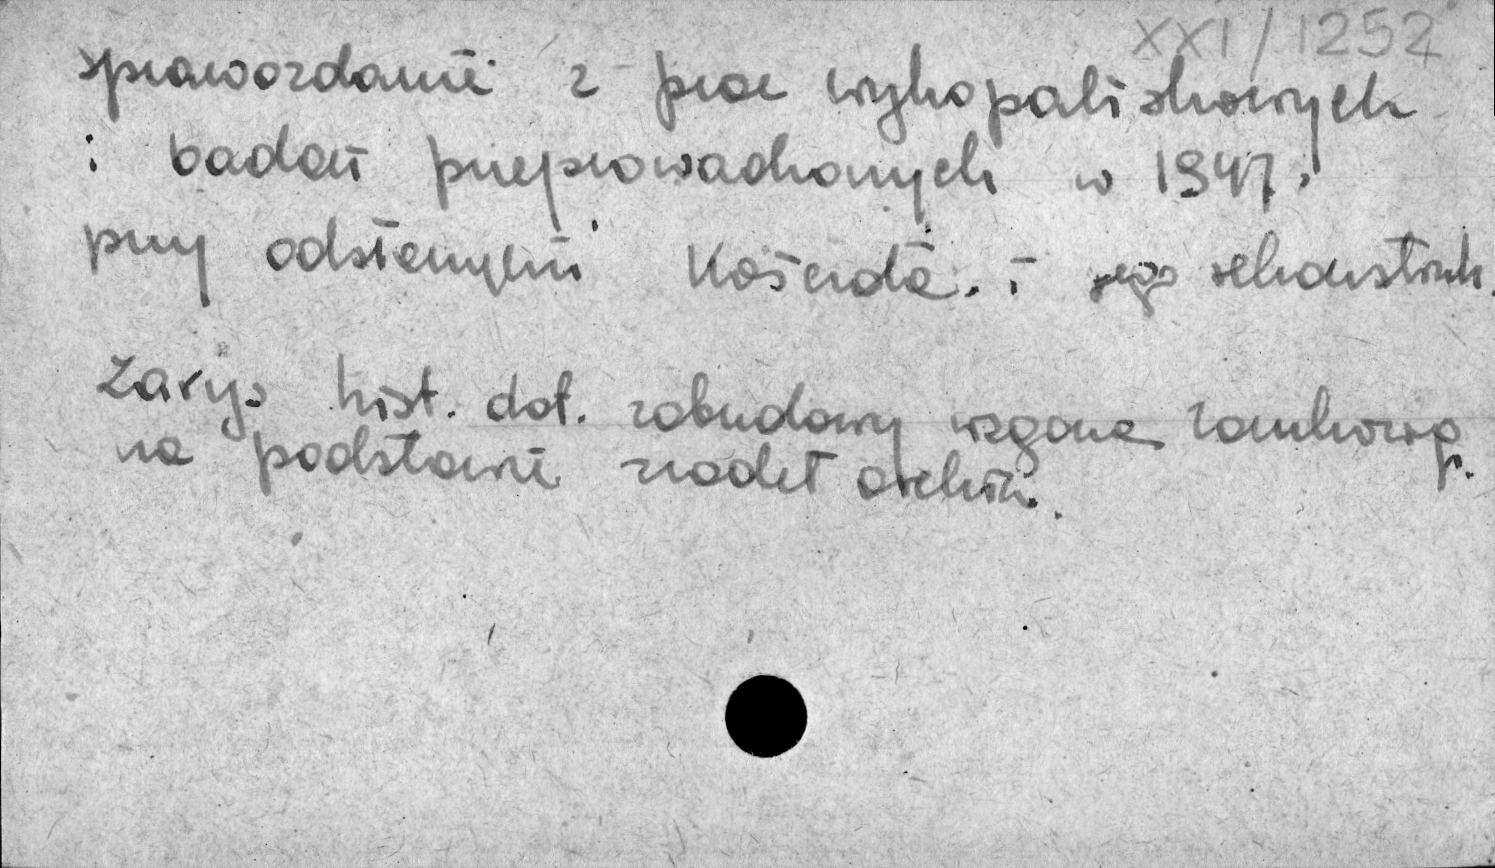 XXI/1252
sprawozdanie z prac wykopaliskowych
i badań przeprowadzonych w 1947.
przy odsłonięciu Kościoła. i jego rekonstruk.
Zarys hist. dot. zabudowy wzgórza zamkowego
na podstawie źródeł archiw.